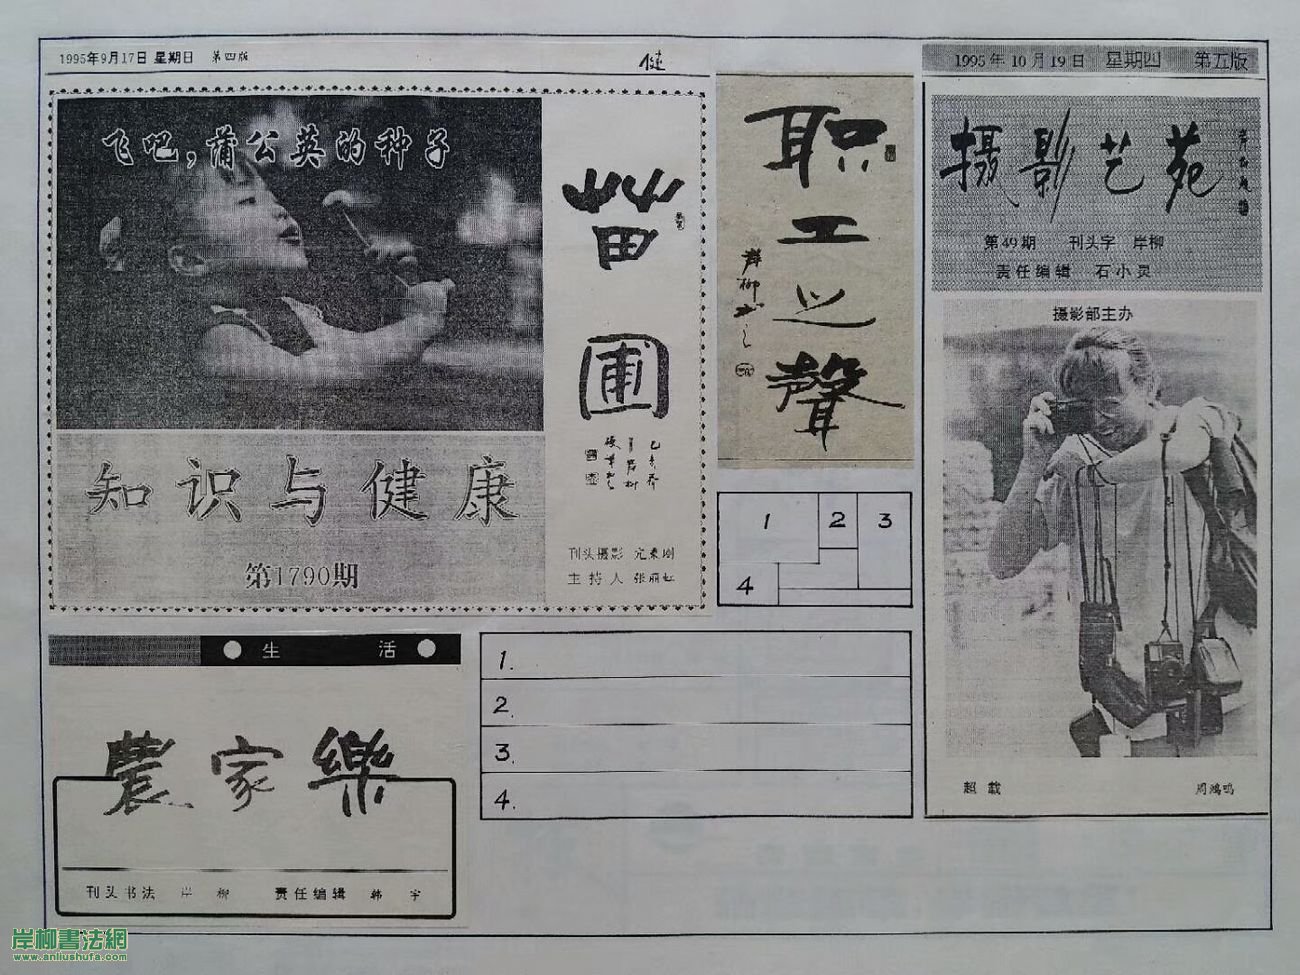 1995年9月17日 星期日 第四版
健
飞吧，蒲公英的种子
苗圃
乙亥春
刊头摄影
主持人 张丽虹
知识与健康
第1790期
职工之聲
岸柳
1995年10月19日 星期四 第五版
摄影艺苑
第49期 刊头字 岸柳
责任编辑 石小灵
摄影部主办
超载 周鸿鸣
1 2 3
4
生活
農家樂
刊头书法 岸柳 责任编辑 韩宇
1.
2.
3.
4.
岸柳書法網
www.anliushufa.com